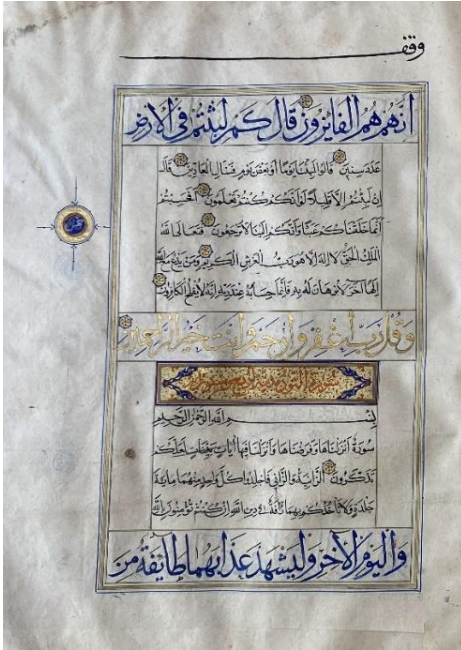 وقف
أنهم هم الفايزون قال كم لبثتم في الارض
عدد سنين قالوا لبثنا يوما أو بعض يوم فسال العادين قال
إن لبثتم إلا قليلا لو أنكم كنتم تعلمون أفحسبتم
أنما خلقناكم عبثا وأنكم إلينا لا ترجعون فتعالى الله
الملك الحق لا اله الا هو رب العرش الكريم ومن يدع مع الله
إلها آخر لا برهان له به فإنما حسابه عند ربه إنه لا يفلح الكافرون
وقل رب اغفر وارحم وأنت خير الراحمين
سورة النور
بسم الله الرحمن الرحيم
سورة أنزلناها وفرضناها وأنزلنا فيها آيات بينات لعلكم
تذكرون الزانية والزاني فاجلدوا كل واحد منهما ماية
جلدة ولا تأخذكم بهما رأفة في دين الله إن كنتم تؤمنون بالله
واليوم الآخر وليشهد عذابهما طايفة من